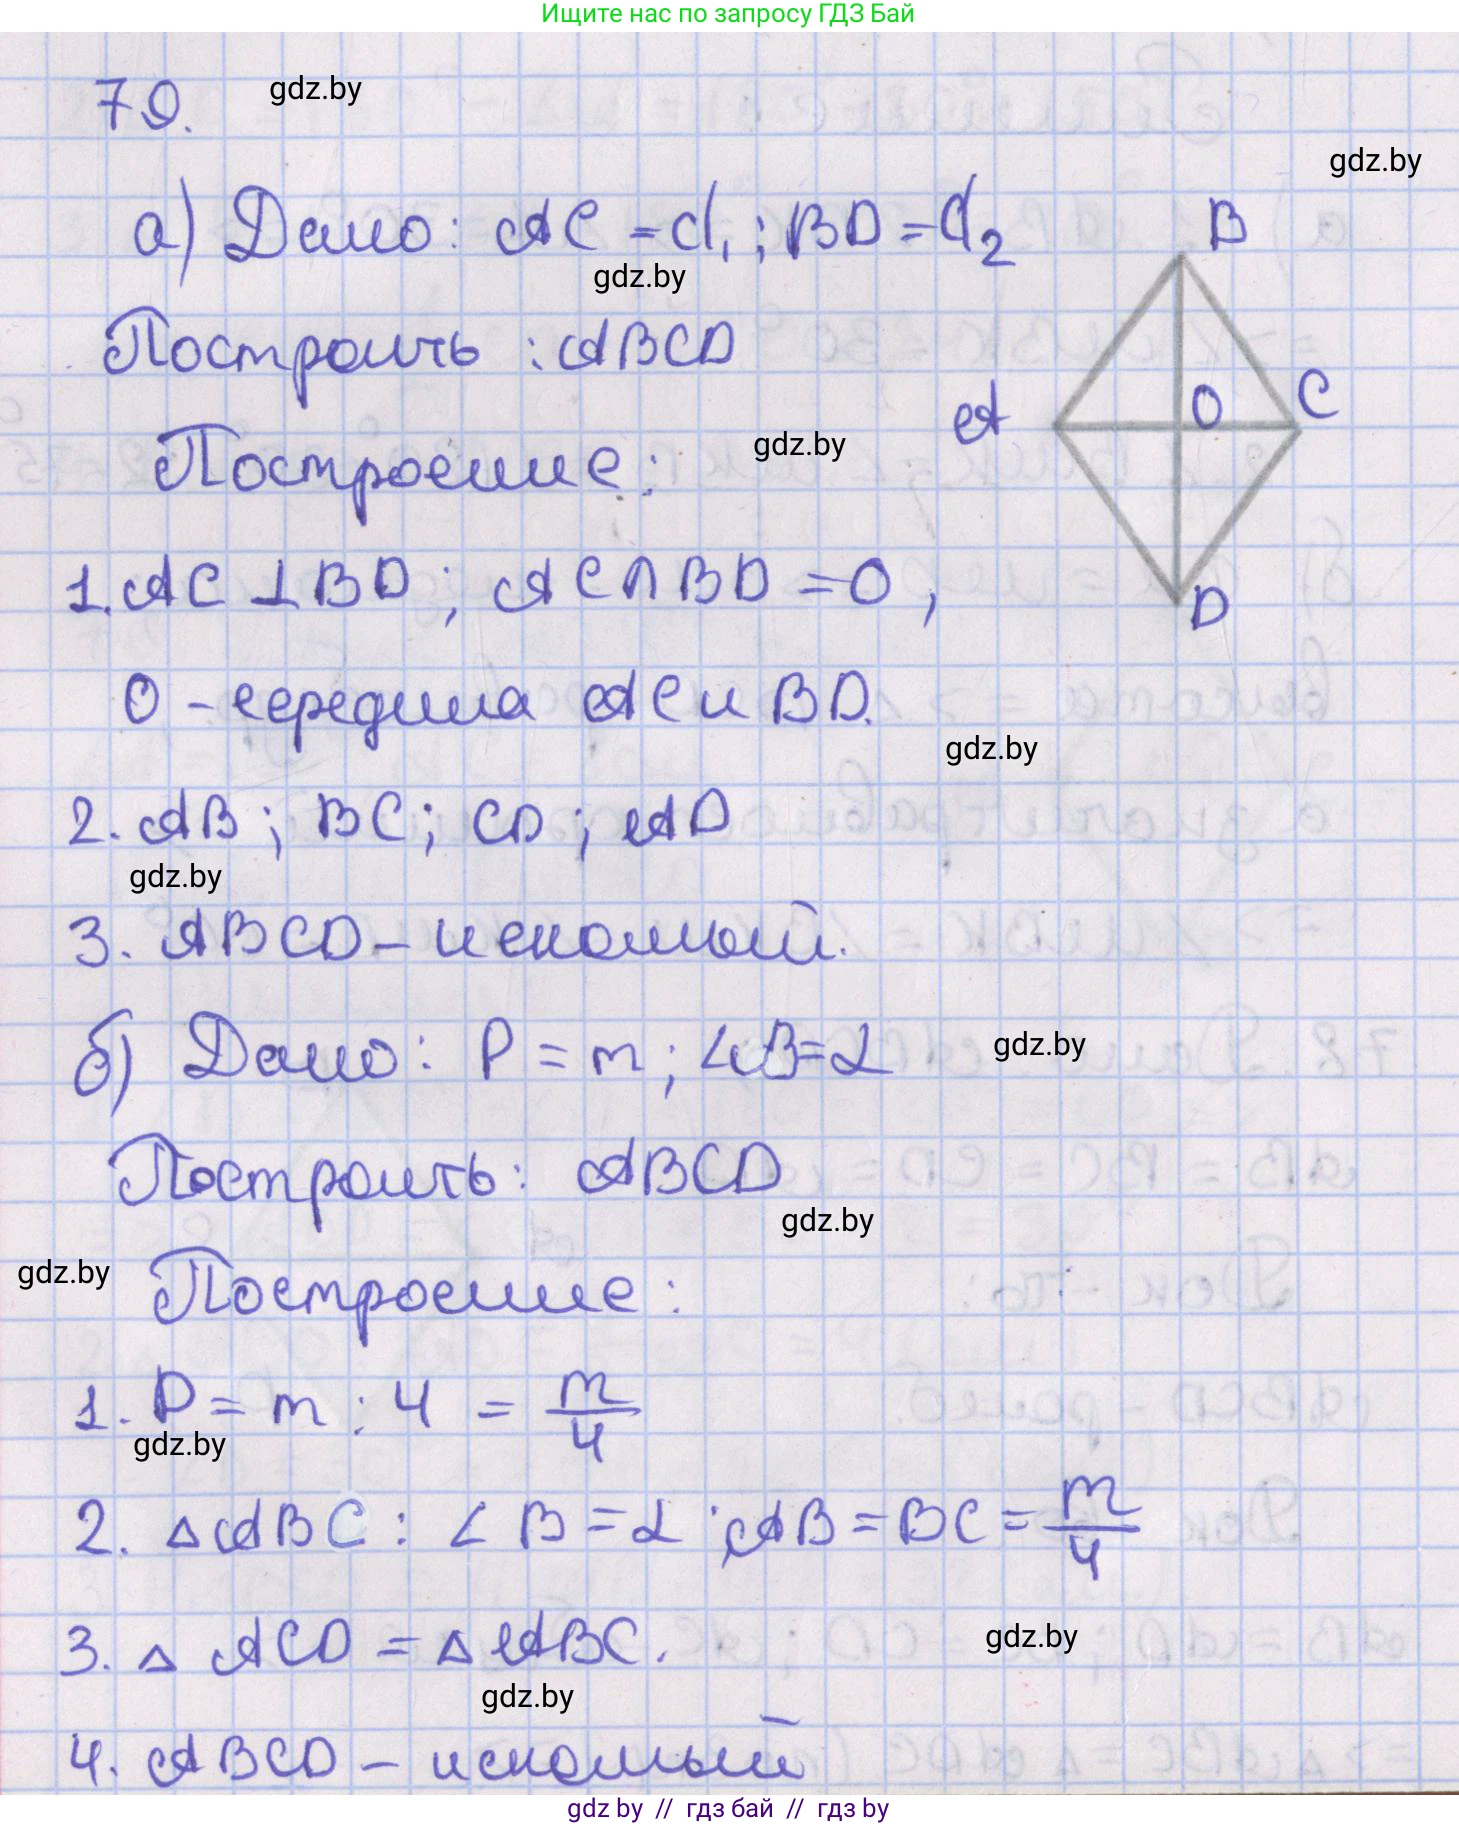 Ищите нас по запросу ГДЗ Бай
79. gdz.by
gdz.by
а) Дано: AC = d₁; BD = d₂
B
gdz.by
Построить: ABCD
A O C
Построение: gdz.by
1. AC ⊥ BD; AC ∩ BD = O,
D
O - середина AC и BD.
gdz.by
2. AB; BC; CD; AD
gdz.by
3. ABCD - искомый.
б) Дано: P = m; ∠B = α gdz.by
Построить: ABCD
gdz.by
gdz.by
Построение:
1. P = m : 4 = m/4
gdz.by
2. △ABC: ∠B = α; AB = BC = m/4
3. △ ACD = △ ABC.
gdz.by
gdz.by
4. ABCD - искомый
gdz by // гдз бай // гдз by